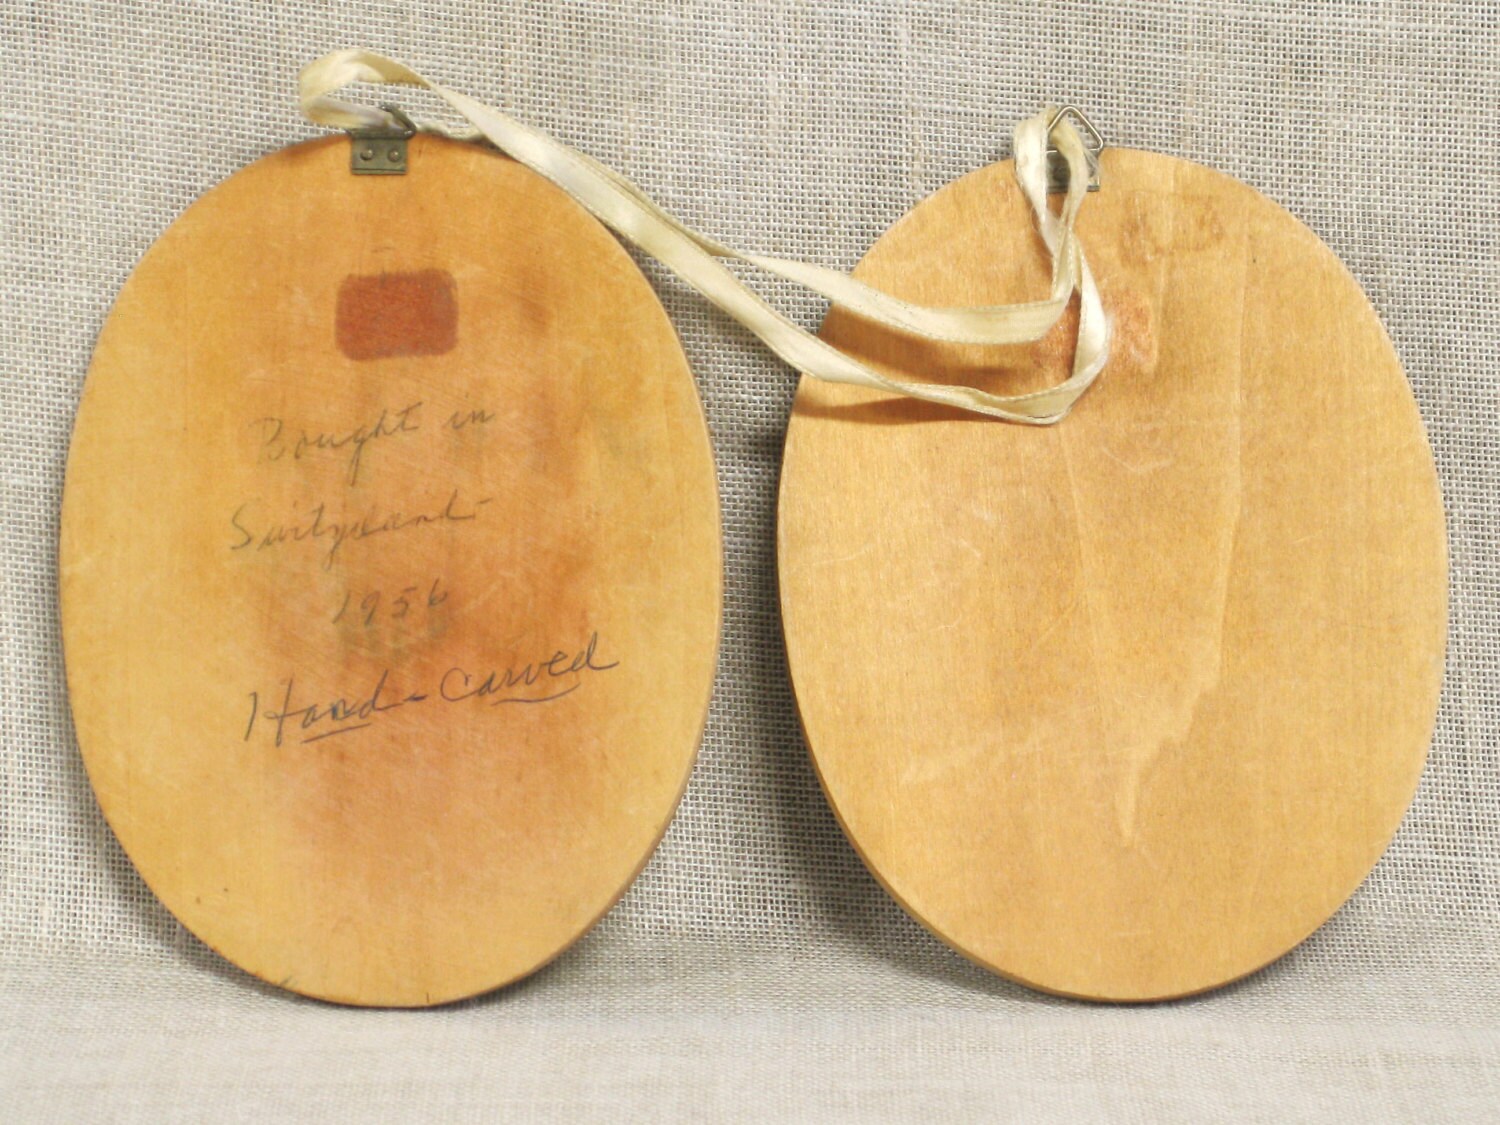 Bought in
Switzerland-
1956
Hand-Carved